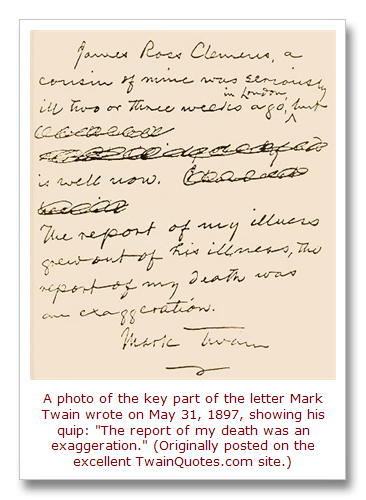 James Ross Clemens, a
cousin of mine was seriously
in London,
ill two or three weeks ago, but
is well now.
The report of my illness
grew out of his illness, the
report of my death was
an exaggeration.
Mark Twain
A photo of the key part of the letter Mark
Twain wrote on May 31, 1897, showing his
quip: "The report of my death was an
exaggeration." (Originally posted on the
excellent TwainQuotes.com site.)